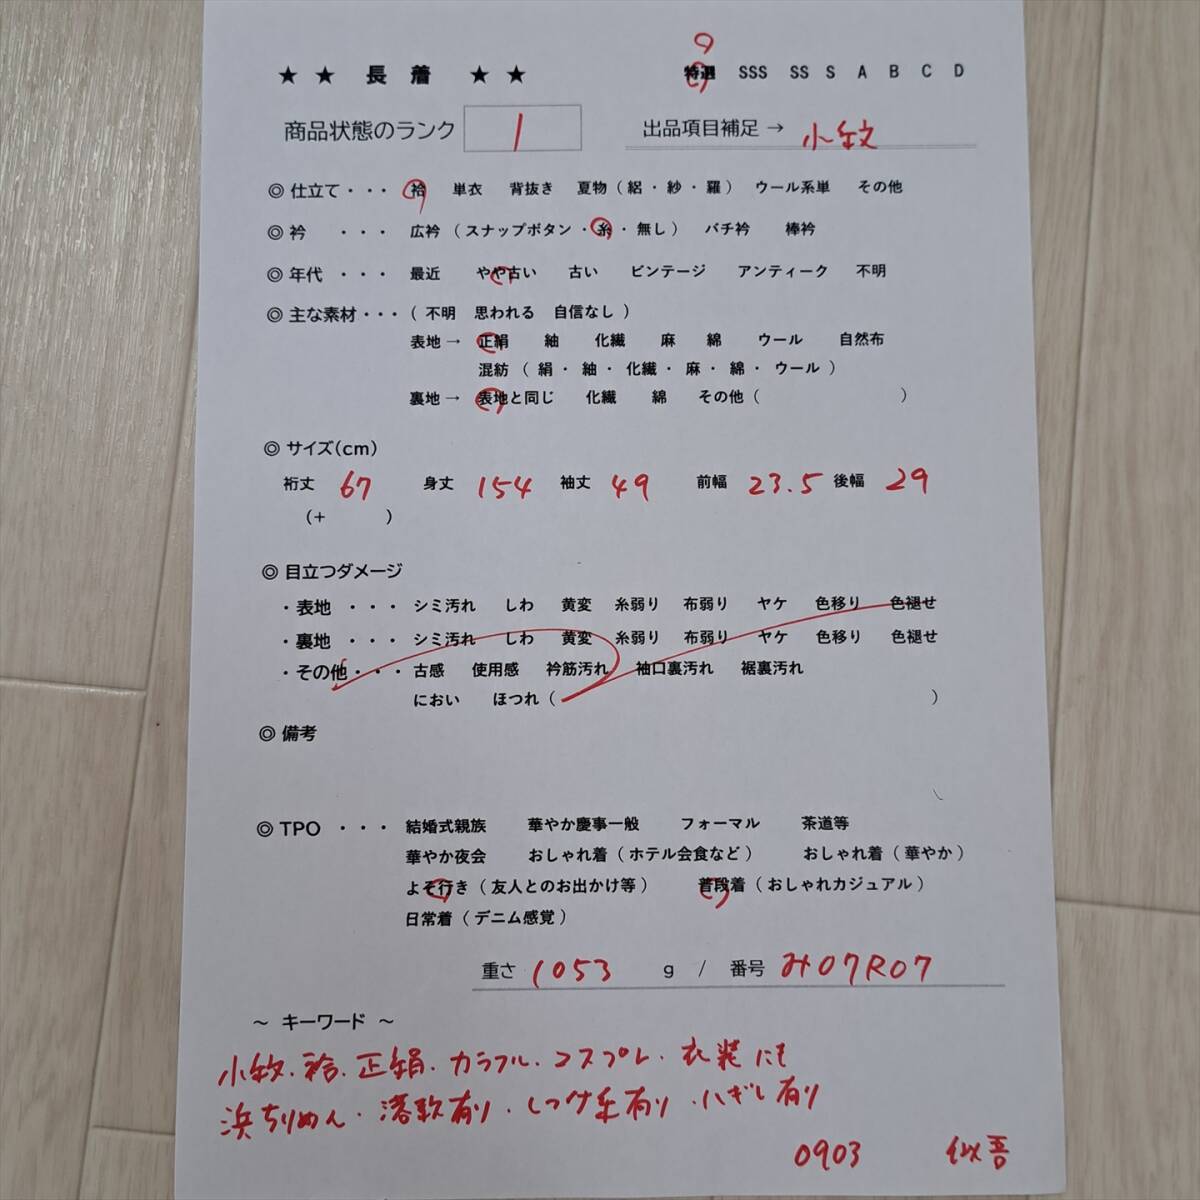 ★ ★ 長 着 ★ ★ 特選 SSS SS S A B C D
商品状態のランク 1 出品項目補足 → 小紋
◎ 仕立て ・・・ 袷 単衣 背抜き 夏物 ( 絽 ・ 紗 ・ 羅 ) ウール系単 その他
◎ 衿 ・・・ 広衿 ( スナップボタン ・ 糸 ・ 無し ) バチ衿 棒衿
◎ 年代 ・・・ 最近 やや古い 古い ビンテージ アンティーク 不明
◎ 主な素材 ・・・ ( 不明 思われる 自信なし )
表地 → 正絹 紬 化繊 麻 綿 ウール 自然布
混紡 ( 絹 ・ 紬 ・ 化繊 ・ 麻 ・ 綿 ・ ウール )
裏地 → 表地と同じ 化繊 綿 その他 ( )
◎ サイズ(cm)
裄丈 67 身丈 154 袖丈 49 前幅 23.5 後幅 29
(+ )
◎ 目立つダメージ
・表地 ・・・ シミ汚れ しわ 黄変 糸弱り 布弱り ヤケ 色移り 色褪せ
・裏地 ・・・ シミ汚れ しわ 黄変 糸弱り 布弱り ヤケ 色移り 色褪せ
・その他 ・・・ 古感 使用感 衿筋汚れ 袖口裏汚れ 裾裏汚れ
におい ほつれ ( )
◎ 備考
◎ TPO ・・・ 結婚式親族 華やか慶事一般 フォーマル 茶道等
華やか夜会 おしゃれ着 ( ホテル会食など ) おしゃれ着 ( 華やか )
よそ行き ( 友人とのお出かけ等 ) 普段着 ( おしゃれカジュアル )
日常着 ( デニム感覚 )
重さ 1053 g / 番号 み07R07
～ キーワード ～
小紋・袷・正絹・カラフル・コスプレ・衣装にも
浜ちりめん・落款有り・しつけ糸有り・ハギレ有り
0903